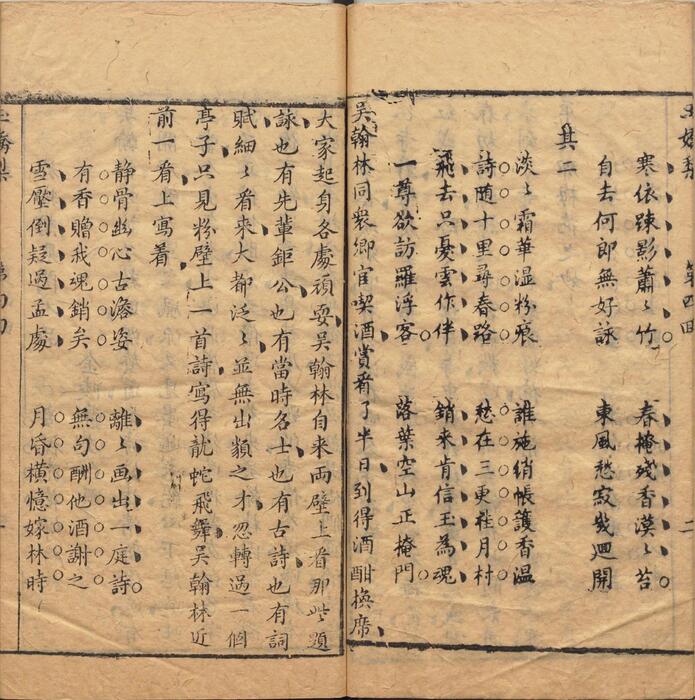 寒依踈影蕭〻竹　春掩殘香漠〻苔
自去何郎無好詠　東風愁寂幾迴開
其二
淡〻霜華濕粉痕　誰施綃帳護香温
詩随十里尋春路　愁在三更挂月村
飛去只憂雲作伴　銷来肯信玉為魂
一尊欲訪羅浮客　落葉空山正掩門
吳翰林同衆鄉官喫酒賞看了半日到得酒酣換席
大家起身各處頑耍吳翰林自来両壁上看那些題
詠也有先輩鉅公也有當時名士也有古詩也有詞
賦細〻看来大都泛〻並無出類之才忽轉過一個
亭子只見粉壁上一首詩寫得龍蛇飛舞吳翰林近
前一看上寫着
静骨幽心古澹姿　離〻画出一庭詩
有香贈我魂銷矣　無句酬他酒謝之
雪壓倒疑過孟處　月昏橫憶嫁林時